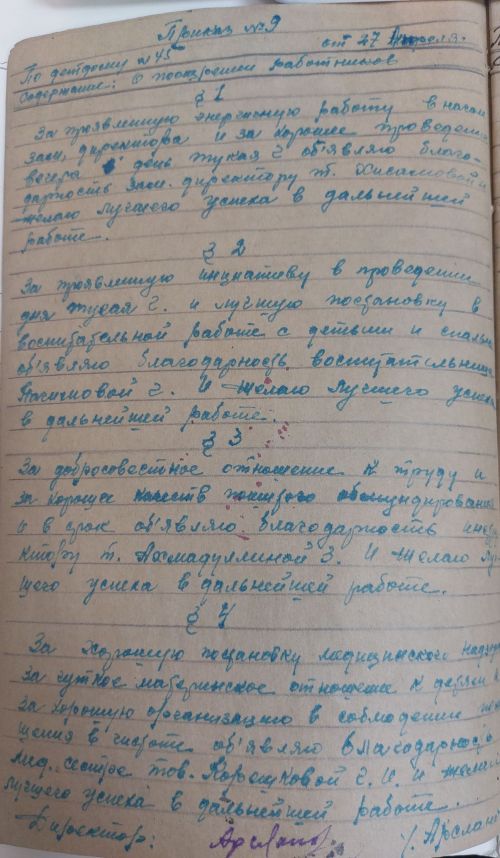 Приказ № 9
По детдому № 45 от 27 Апреля.
Содержание: О поощрении работников
§ 1
За проявленную энергичную работу в
зам. директора и за хорошие проведени
вечера день тукая г. объявляю благо-
дарность зам. директору т. Хисамовой и
желаю лучшего успеха в дальнейшей
работе.
§ 2
За проявленную инциативу в проведении
дня тукая г. и лучшую постановку в
воспитательной работе с детьми и
объявляю благодарность воспитательнице
г. И желаю лучшего успеха
в дальнейшей работе.
§ 3
За добросовестное отношение к труду и
за хорошее качеств обмундирования
и в срок объявляю благодарность инс
ктору т. Ахмадуллиной З. И желаю лу
щего успеха в дальнейшей работе.
§ 4
За хорошую постановку медицинского надзор
За чуткое материнское отношение к детям и
за хорошую организацию в соблюдении
щения в чистоте объявляю благодарность
мед. сестре тов. Корешковой г. И. и желаю
лучшего успеха в дальнейшей работе.
Директор: Арслан